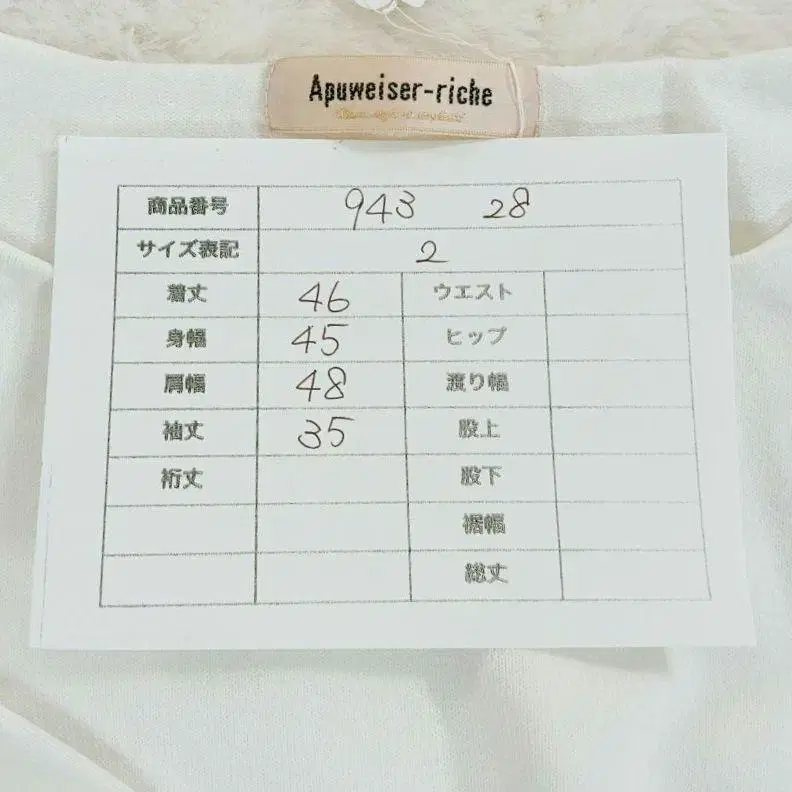 Apuweiser-riche
商品番号 943 28
サイズ表記 2
着丈 46 ウエスト
身幅 45 ヒップ
肩幅 48 渡り幅
袖丈 35 股上
裄丈 股下
裾幅
総丈